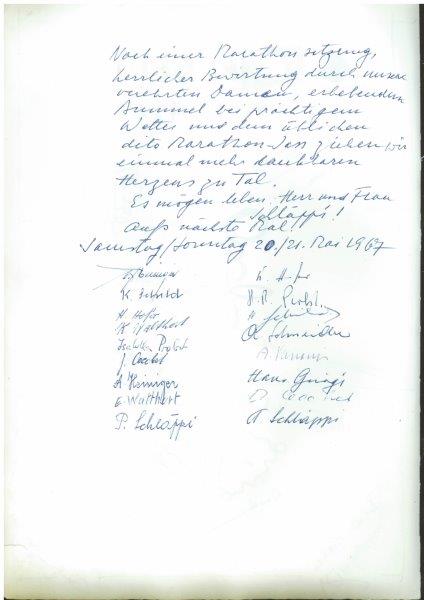 Nach einer Marathonsitzung,
herrlicher Bewirtung durch unsere
verehrten Damen, erhebendem
Bummel bei prächtigem
Wetter und dem üblichen
dito Marathon-Jass ziehen wir
einmal mehr dankbaren
Herzens zu Tal.
Es mögen leben Herr und Frau
Schläppi!
Aufs nächste Mal!
Samstag/Sonntag 20./21. Mai 1967
K. Hofer
H. R. Probst
H. Hofer
K. Walthert
A. Schneider
Isabella Probst
J.
A.
A. Heiniger
Hans Gürgi
E. Walthert
P. Schläppi
A. Schläppi